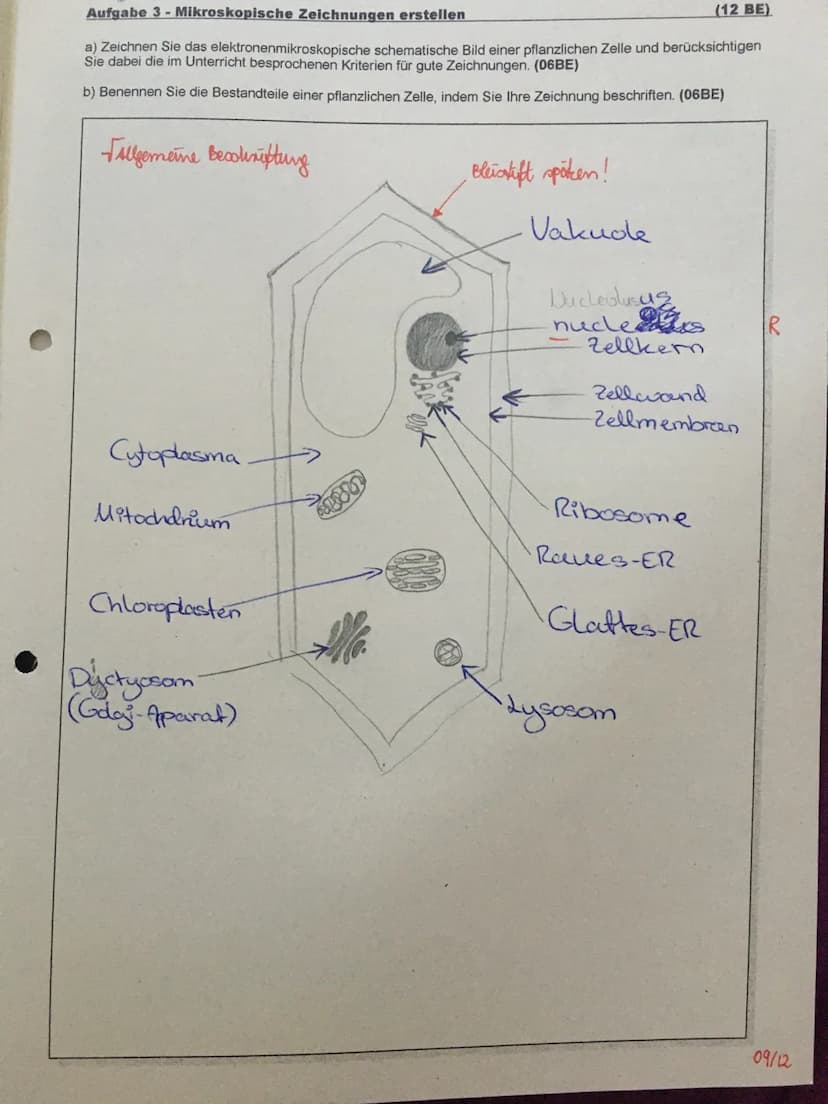 Aufgabe 3 - Mikroskopische Zeichnungen erstellen (12 BE)
a) Zeichnen Sie das elektronenmikroskopische schematische Bild einer pflanzlichen Zelle und berücksichtigen
Sie dabei die im Unterricht besprochenen Kriterien für gute Zeichnungen. (06BE)
b) Benennen Sie die Bestandteile einer pflanzlichen Zelle, indem Sie Ihre Zeichnung beschriften. (06BE)
√Allgemeine Beschriftung
Bleistift spitzen!
Vakuole
Nucleolusus
nucle us R
Zellkern
Zellwand
Zellmembran
Cytoplasma
Mitochdrium
Ribosome
Raues-ER
Chloroplasten
Glattes-ER
Dyctyosom
(Golgi-Aparat)
Lysosom
09/12